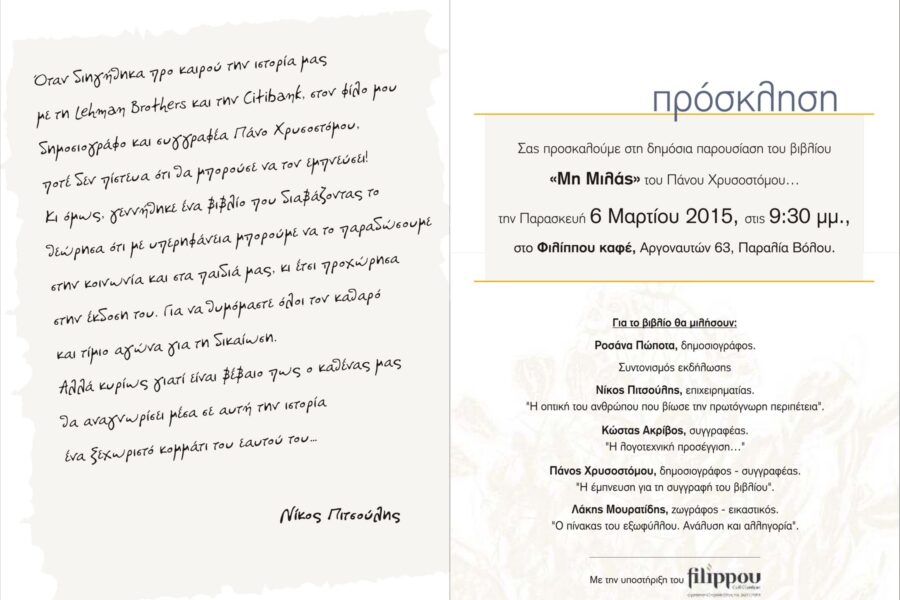 Όταν διηγήθηκα προ καιρού την ιστορία μας
με τη Lehman Brothers και την Citibank, στον φίλο μου
δημοσιογράφο και συγγραφέα Πάνο Χρυσοστόμου,
ποτέ δεν πίστευα ότι θα μπορούσε να τον εμπνεύσει!
Κι όμως, γεννήθηκε ένα βιβλίο που διαβάζοντας το
θεώρησα ότι με υπερηφάνεια μπορούμε να το παραδώσουμε
στην κοινωνία και στα παιδιά μας, κι έτσι προχώρησα
στην έκδοση του. Για να θυμόμαστε όλοι τον καθαρό
και τίμιο αγώνα για τη δικαίωση.
Αλλά κυρίως γιατί είναι βέβαιο πως ο καθένας μας
θα αναγνωρίσει μέσα σε αυτή την ιστορία
ένα ξεχωριστό κομμάτι του εαυτού του...
Νίκος Πιτσούλης
πρόσκληση
Σας προσκαλούμε στη δημόσια παρουσίαση του βιβλίου
«Μη Μιλάς» του Πάνου Χρυσοστόμου...
την Παρασκευή 6 Μαρτίου 2015, στις 9:30 μμ.,
στο Φιλίππου καφέ, Αργοναυτών 63, Παραλία Βόλου.
Για το βιβλίο θα μιλήσουν:
Ροσάνα Πώποτα, δημοσιογράφος.
Συντονισμός εκδήλωσης
Νίκος Πιτσούλης, επιχειρηματίας.
"Η οπτική του ανθρώπου που βίωσε την πρωτόγνωρη περιπέτεια".
Κώστας Ακρίβος, συγγραφέας.
"Η λογοτεχνική προσέγγιση..."
Πάνος Χρυσοστόμου, δημοσιογράφος - συγγραφέας.
"Η έμπνευση για τη συγγραφή του βιβλίου".
Λάκης Μουρατίδης, ζωγράφος - εικαστικός.
"Ο πίνακας του εξωφύλλου. Ανάλυση και αλληγορία".
Με την υποστήριξη του filippou